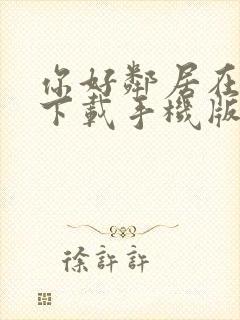 你好鄰居在
下載手機版
徐許許